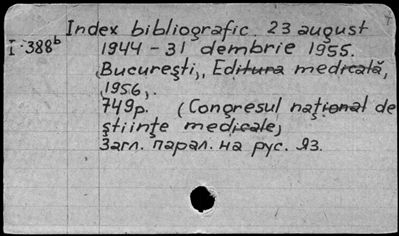 Index bibliografic. 23 august
I-388ᵇ 1944 - 31 dembrie 1955.
București, Editura medicală,
1956.
749p. (Congresul național de
științe medicale)
Загл. парал. на рус. яз.